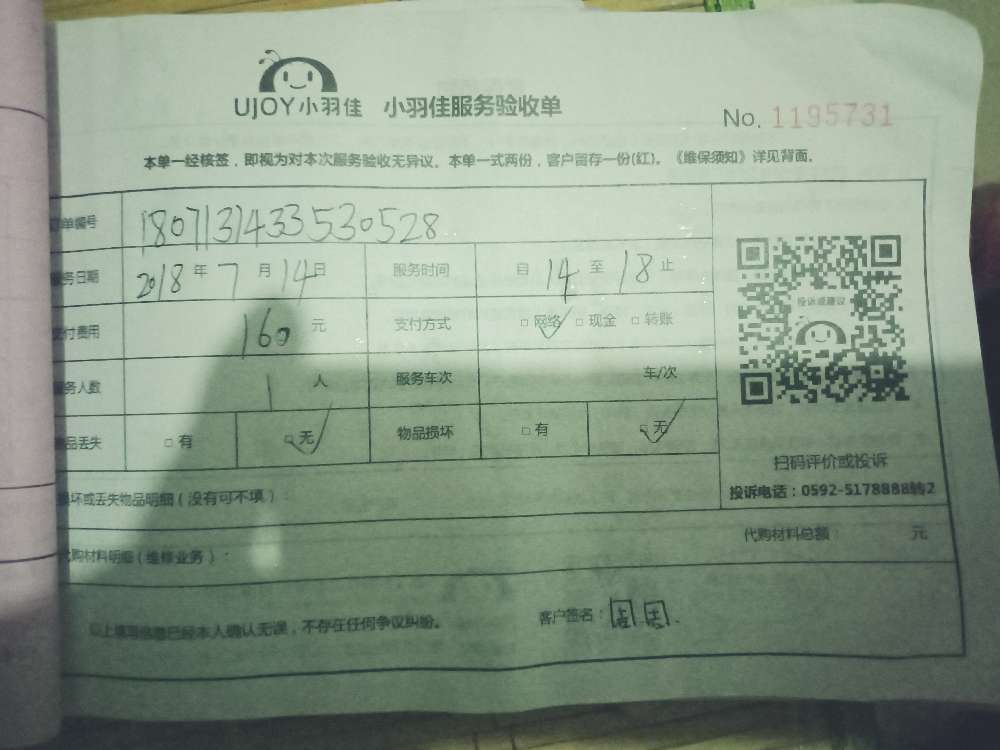 UJOY小羽佳 小羽佳服务验收单
No. 1195731
本单一经核签，即视为对本次服务验收无异议。本单一式两份，客户留存一份(红)。《维保须知》详见背面。
单编号 1807131433530528
务日期 2018年7月14日 服务时间 自14至18止
付费用 160元 支付方式 □网络 □现金 □转账
务人数 1人 服务车次 车/次
品丢失 □有 □无 物品损坏 □有 □无
投诉或建议
扫码评价或投诉
投诉电话：0592-5178888转2
坏或丢失物品明细（没有可不填）：
代购材料明细（维修业务）： 代购材料总额： 元
以上填写信息已经本人确认无误，不存在任何争议纠纷。 客户签名：